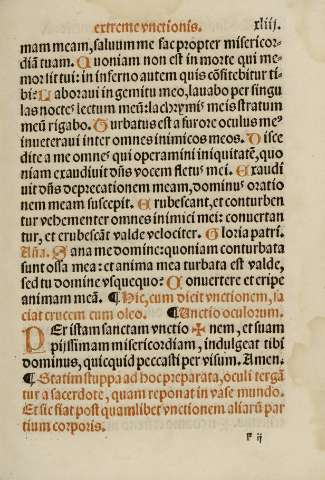 extreme vnctionis. xliij.
mam meam, saluum me fac propter misericor-
diā tuam. Quoniam non est in morte qui me-
mor sit tui: in inferno autem quis cōfitebitur ti-
bi: Laboraui in gemitu meo, lauabo per singu
las noctes lectum meū: lachrymis meis stratum
meū rigabo. Turbatus est a furore oculus me?
inueteraui inter omnes inimicos meos. Disce
dite a me omnes qui operamini iniquitatē, quo
niam exaudiuit dñs vocem fletus mei. Exaudi
uit dñs deprecationem meam, dominus oratio
nem meam suscepit. Erubescant, et conturben
tur vehementer omnes inimici mei: conuertan
tur, et erubescāt valde velociter. Gloria patri.
Aña. Sana me domine: quoniam conturbata
sunt ossa mea: et anima mea turbata est valde,
sed tu domine vsquequo: Conuertere et eripe
animam meā. ¶ Hic, cum dicit vnctionem, fa
ciat crucem cum oleo. ¶ Unctio oculorum.
Per istam sanctam vnctio ✠ nem, et suam
pijssimam misericordiam, indulgeat tibi
dominus, quicquid peccasti per visum. Amen.
¶ Statim stuppa ad hoc preparata, oculi tergā
tur a sacerdote, quam reponat in vase mundo.
Et sic fiat post quamlibet vnctionem aliarū par
tium corporis.
F ij